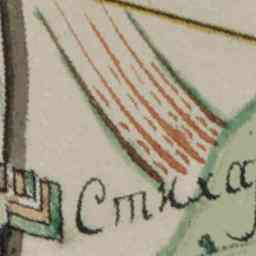 Стиха